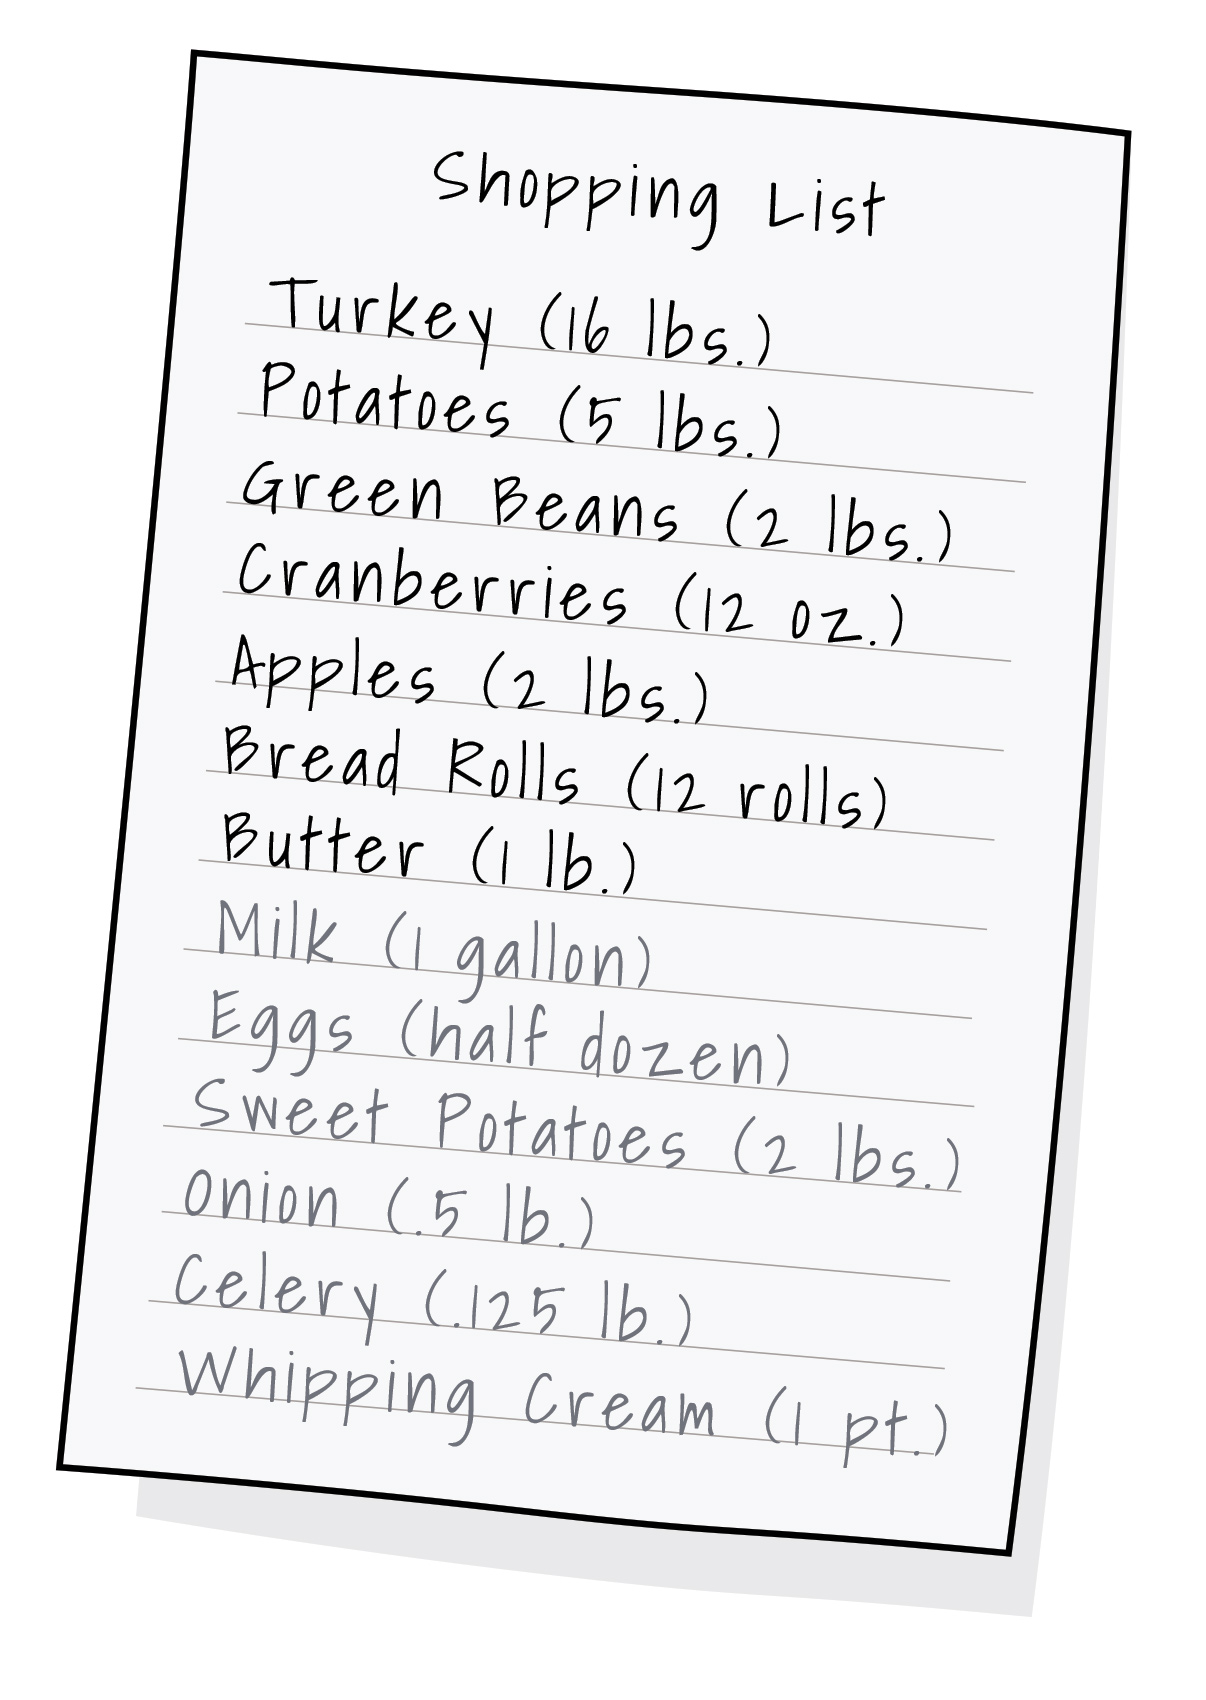 Shopping List
Turkey (16 lbs.)
Potatoes (5 lbs.)
Green Beans (2 lbs.)
Cranberries (12 oz.)
Apples (2 lbs.)
Bread Rolls (12 rolls)
Butter (1 lb.)
Milk (1 gallon)
Eggs (half dozen)
Sweet Potatoes (2 lbs.)
Onion (.5 lb.)
Celery (.125 lb.)
Whipping Cream (1 pt.)